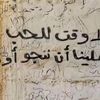 لا وقت للحب
علينا أن ننجو أو